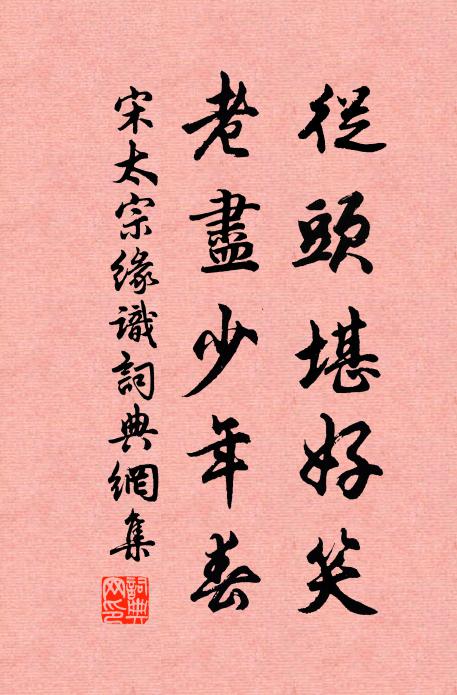 從頭堪好笑
老盡少年春
宋太宗緣識詞典網集
詞典網印